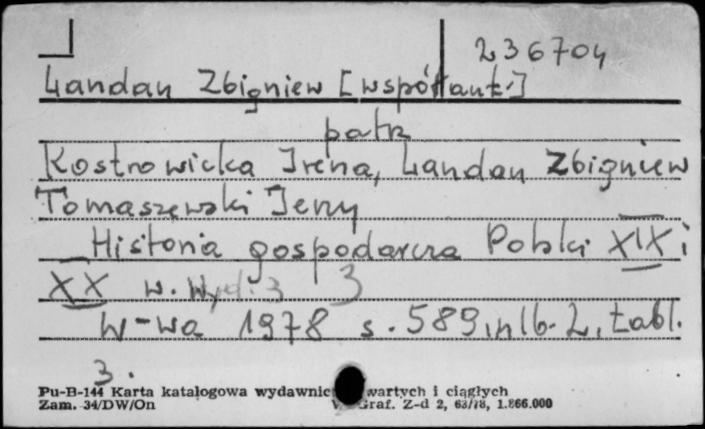 236704
Landau Zbigniew [współaut.]
patrz
Kostrowicka Irena, Landau Zbigniew
Tomaszewski Jerzy
Historia gospodarcza Polski XIX i
XX w. Wyd. 3 3
W-wa 1978 s. 589, nlb. 2, tabl.
3.
Pu-B-144 Karta katalogowa wydawnic wartych i ciągłych
Zam. 34/DW/On Graf. Z-d 2, 63/78, 1.866.000